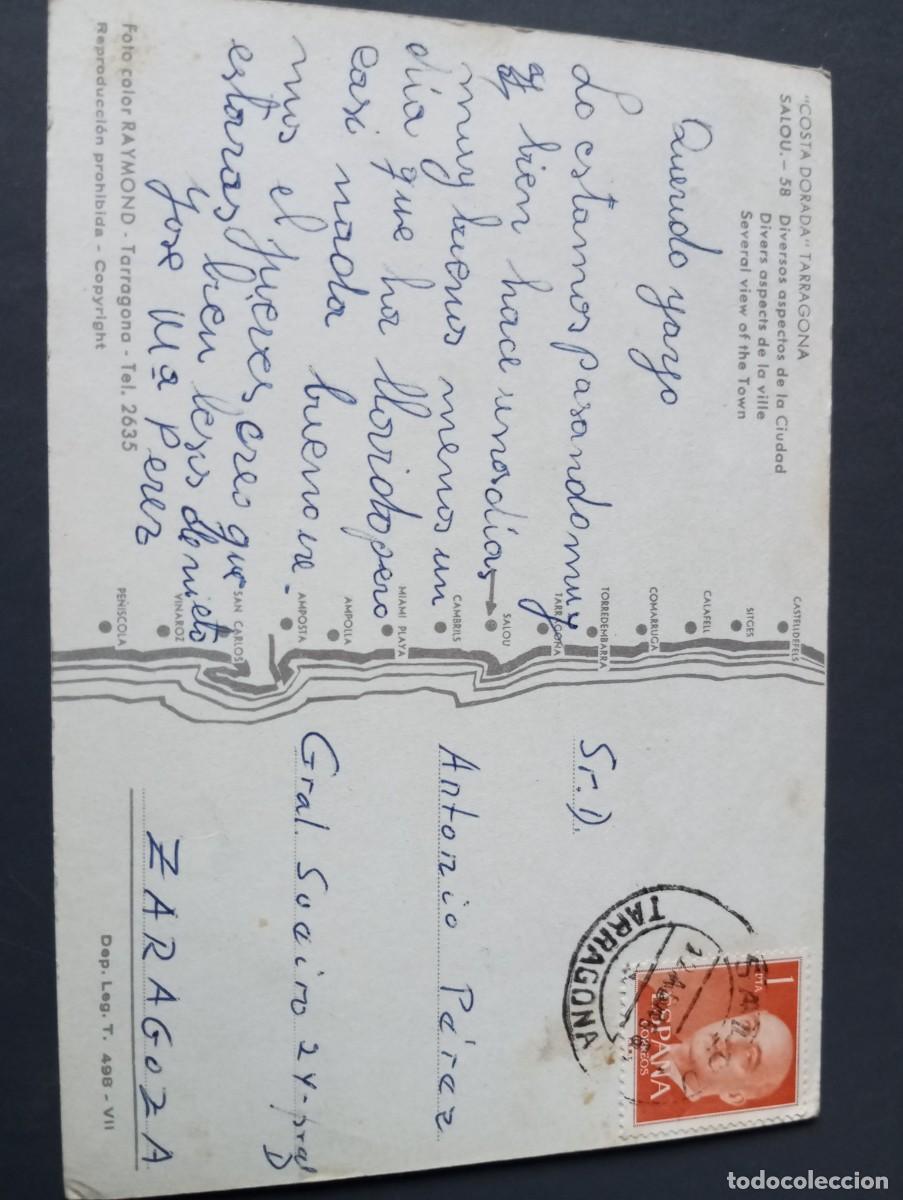 "COSTA DORADA" TARRAGONA
SALOU.- 58 Diversos aspectos de la Ciudad
Divers aspects de la ville
Several view of the Town
Querido yayo
Lo estamos pasando muy
bien hace unos días
muy buenos menos un
día que ha llovido pero
casi nada bueno ire-
mos el jueves creo que
estaras bien besos de nieto
Jose Mª Perez
Foto color RAYMOND - Tarragona - Tel. 2635
Reproducción prohibida - Copyright
CASTELLDEFELS
SITGES
CALAFELL
COMARRUGA
TORREDEMBARRA
TARRAGONA
SALOU
CAMBRILS
MIAMI PLAYA
AMPOLLA
AMPOSTA
SAN CARLOS
VINAROZ
PEÑISCOLA
Sr. D.
Antonio Pérez
Gral Sueiro 24-pral
D
ZARAGOZA
Dep. Leg. T. 498 - VII
1 PTA
ESPAÑA
CORREOS
TARRAGONA
todocoleccion